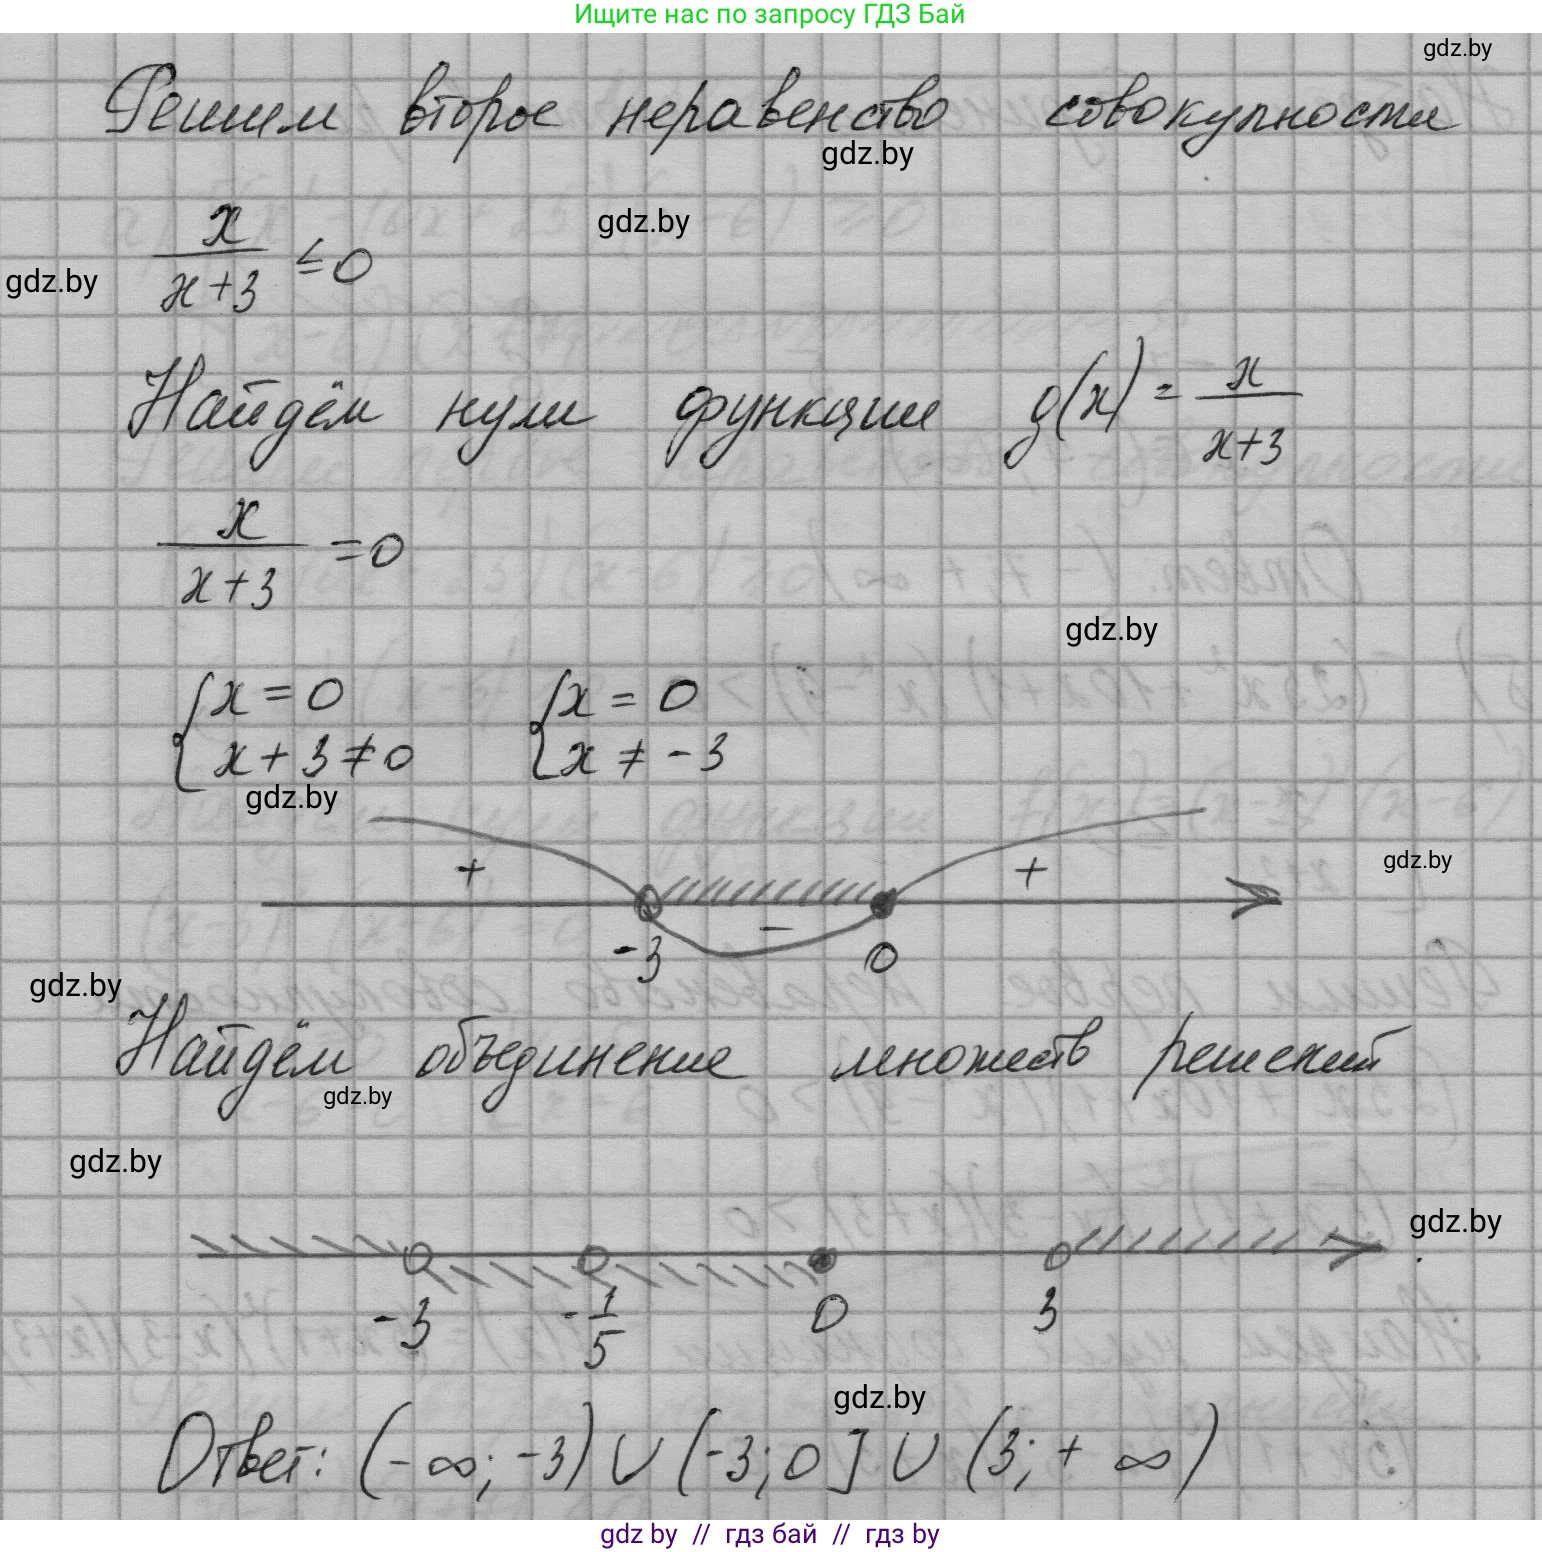 Ищите нас по запросу ГДЗ Бай
gdz.by
Решим второе неравенство совокупности
gdz.by
gdz.by
x/(x+3) ≤ 0
gdz.by
Найдём нули функции g(x) = x/(x+3)
x/(x+3) = 0
gdz.by
{x = 0 {x = 0
{x + 3 ≠ 0 {x ≠ -3
gdz.by
gdz.by
+ - +
-3 0
gdz.by
Найдём объединение множеств решений
gdz.by
gdz.by
gdz.by
-3 -1/5 0 3
gdz.by
Ответ: (-∞; -3) ∪ (-3; 0] ∪ (3; +∞)
gdz by // гдз бай // гдз by